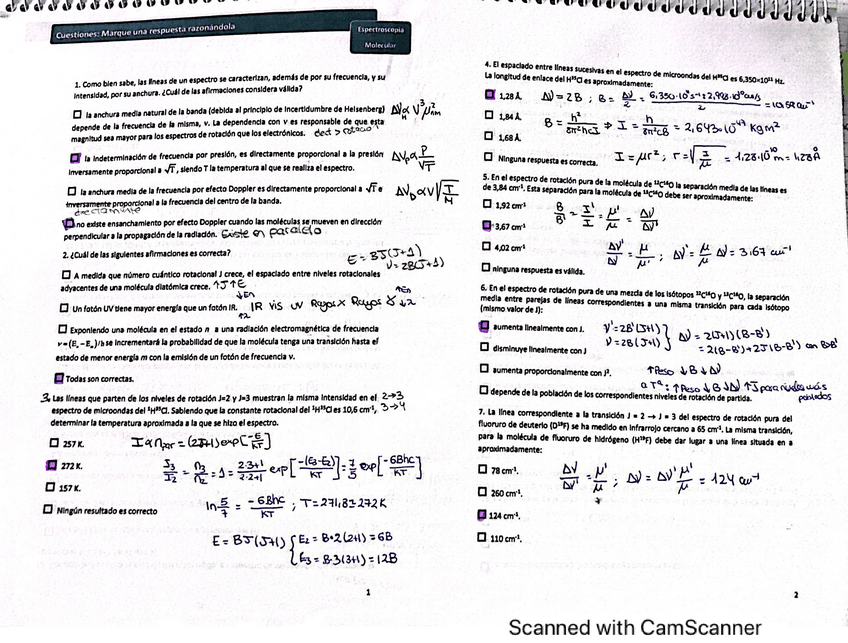 Cuestiones: Marque una respuesta razonándola
Espectroscopia
Molecular
1. Como bien sabe, las líneas de un espectro se caracterizan, además de por su frecuencia, y su
intensidad, por su anchura. ¿Cuál de las afirmaciones considera válida?
☐ la anchura media natural de la banda (debida al principio de Incertidumbre de Heisenberg)
depende de la frecuencia de la misma, ν. La dependencia con ν es responsable de que esta
magnitud sea mayor para los espectros de rotación que los electrónicos.
la indeterminación de frecuencia por presión, es directamente proporcional a la presión
inversamente proporcional a √T, siendo T la temperatura al que se realiza el espectro.
Δν_p α P/√T
☐ la anchura media de la frecuencia por efecto Doppler es directamente proporcional a √T e
inversamente proporcional a la frecuencia del centro de la banda.
directamente
no existe ensanchamiento por efecto Doppler cuando las moléculas se mueven en dirección
perpendicular a la propagación de la radiación. Existe en paralelo.
2. ¿Cuál de las siguientes afirmaciones es correcta?
E = BJ(J+1)
ν = 2B(J+1)
☐ A medida que número cuántico rotacional J crece, el espaciado entre niveles rotacionales
adyacentes de una molécula diatómica crece. ↑J↑E
☐ Un fotón UV tiene mayor energía que un fotón IR. IR vis UV Rayos X Rayos γ
☐ Exponiendo una molécula en el estado n a una radiación electromagnética de frecuencia
ν = (Eₙ – Eₘ)/h se incrementará la probabilidad de que la molécula tenga una transición hasta el
estado de menor energía m con la emisión de un fotón de frecuencia ν.
Todas son correctas.
3. Las líneas que parten de los niveles de rotación J=2 y J=3 muestran la misma intensidad en el 2→3
espectro de microondas del ¹H³⁵Cl. Sabiendo que la constante rotacional del ¹H³⁵Cl es 10,6 cm⁻¹, 3→4
determinar la temperatura aproximada a la que se hizo el espectro.
☐ 257 K.
272 K.
☐ 157 K.
☐ Ningún resultado es correcto
J₃/J₂ = n₃/n₂ = 1 = (2·3+1)/(2·2+1) exp[-(E₃-E₂)/KT] = 7/5 exp[-6Bhc/KT]
ln 5/7 = -6Bhc/KT ; T = 271,8 ≈ 272 K
E = BJ(J+1) { E₂ = B·2(2+1) = 6B
E₃ = B·3(3+1) = 12B
1
4. El espaciado entre líneas sucesivas en el espectro de microondas del H³⁵Cl es 6,350×10¹¹ Hz.
La longitud de enlace del H³⁵Cl es aproximadamente:
1,28 Å.
☐ 1,84 Å.
☐ 1,68 Å.
☐ Ninguna respuesta es correcta.
Δν = 2B ; B = Δν/2
⇒ I = h/8π²cB = 2,643·10⁻⁴⁷ Kg m²
I = μr² ; r = √(I/μ) = 1,28·10⁻¹⁰ m = 1,28 Å
5. En el espectro de rotación pura de la molécula de ¹²C¹⁶O la separación media de las líneas es
de 3,84 cm⁻¹. Esta separación para la molécula de ¹³C¹⁶O debe ser aproximadamente:
☐ 1,92 cm⁻¹
3,67 cm⁻¹
☐ 4,02 cm⁻¹
☐ ninguna respuesta es válida.
B/B' = I'/I = μ'/μ = Δν/Δν'
Δν'/Δν = μ/μ' ; Δν' = μ/μ' Δν = 3,67 cm⁻¹
6. En el espectro de rotación pura de una mezcla de los isótopos ¹²C¹⁶O y ¹³C¹⁶O, la separación
media entre parejas de líneas correspondientes a una misma transición para cada isótopo
(mismo valor de J):
aumenta linealmente con J.
☐ disminuye linealmente con J
☐ aumenta proporcionalmente con J².
☐ depende de la población de los correspondientes niveles de rotación de partida.
ν' = 2B'(J+1)
ν = 2B(J+1) } Δν = 2(J+1)(B-B')
= 2(B-B')+2J(B-B') con B>B'
↑Peso ↓B ↓Δν
a Tª: ↑Peso ↓B ↓Δν ↑J para niveles más
poblados
7. La línea correspondiente a la transición J = 2 → J = 3 del espectro de rotación pura del
fluoruro de deuterio (D¹⁹F) se ha medido en infrarrojo cercano a 65 cm⁻¹. La misma transición,
para la molécula de fluoruro de hidrógeno (H¹⁹F) debe dar lugar a una línea situada en a
aproximadamente:
☐ 78 cm⁻¹.
☐ 260 cm⁻¹.
124 cm⁻¹.
☐ 110 cm⁻¹.
Δν/Δν' = μ'/μ ; Δν = Δν' μ'/μ = 124 cm⁻¹
2
Scanned with CamScanner